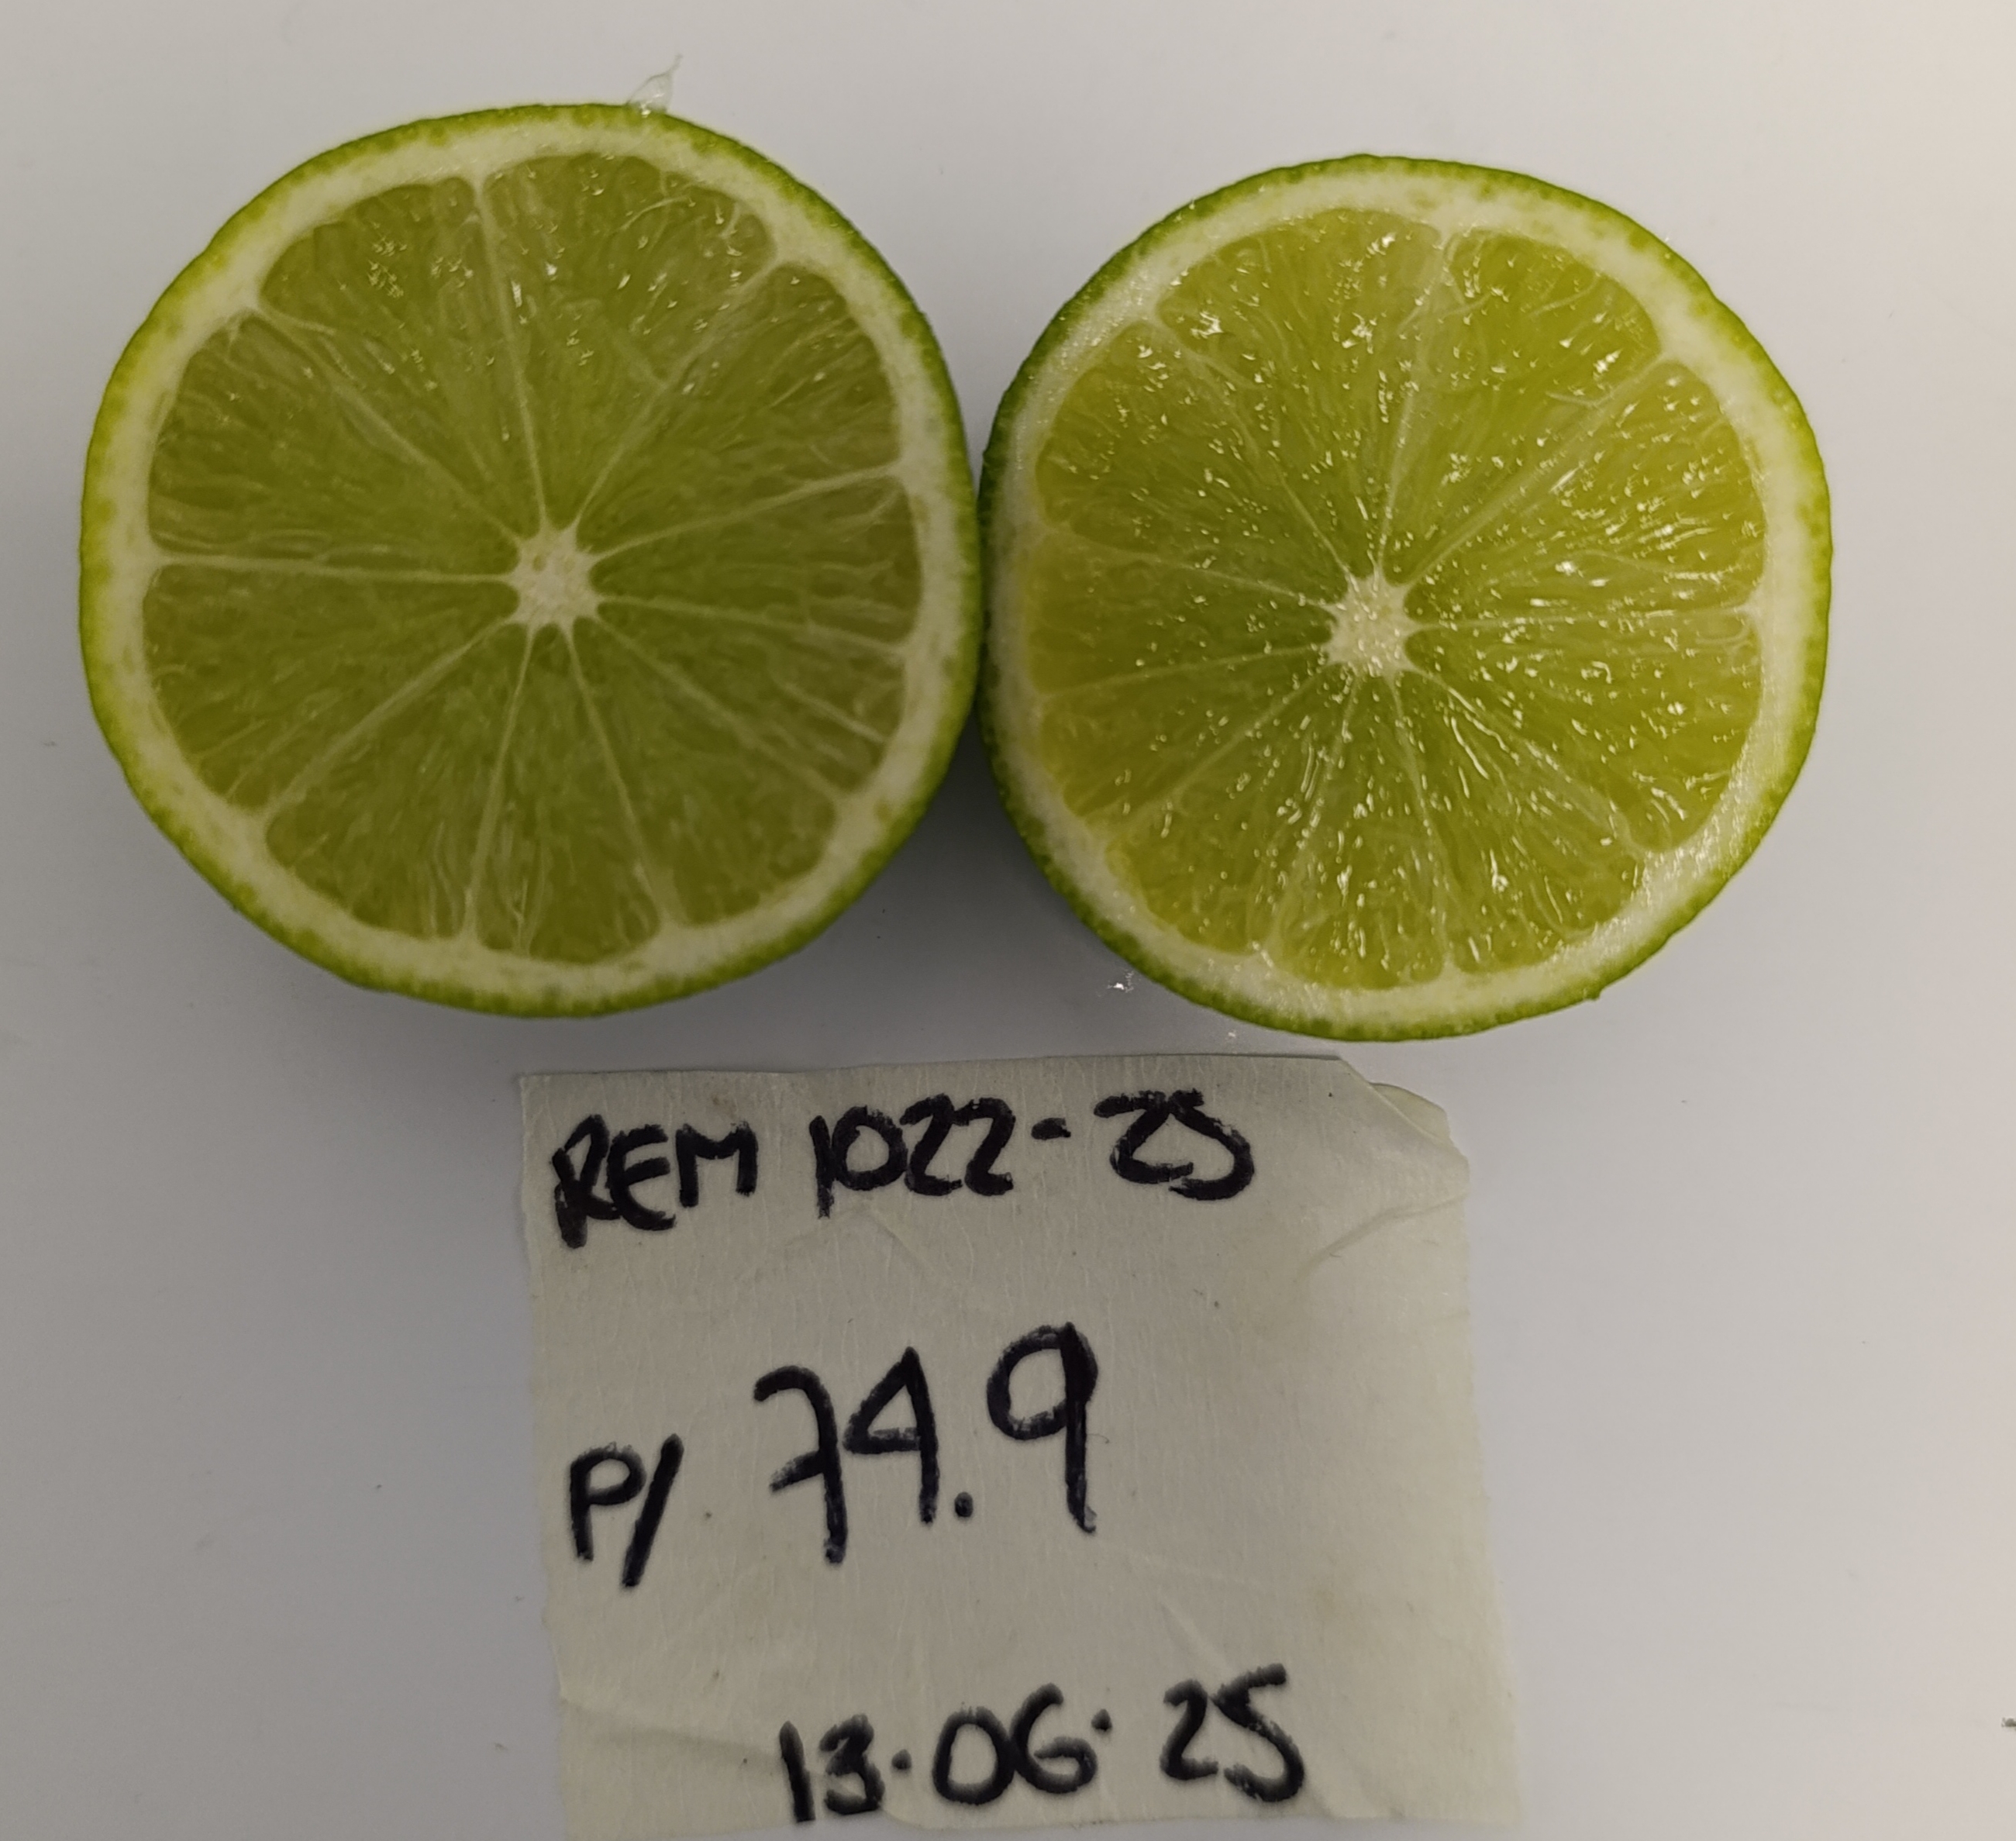 REM 1022-25
P/ 74.9
13.06.25